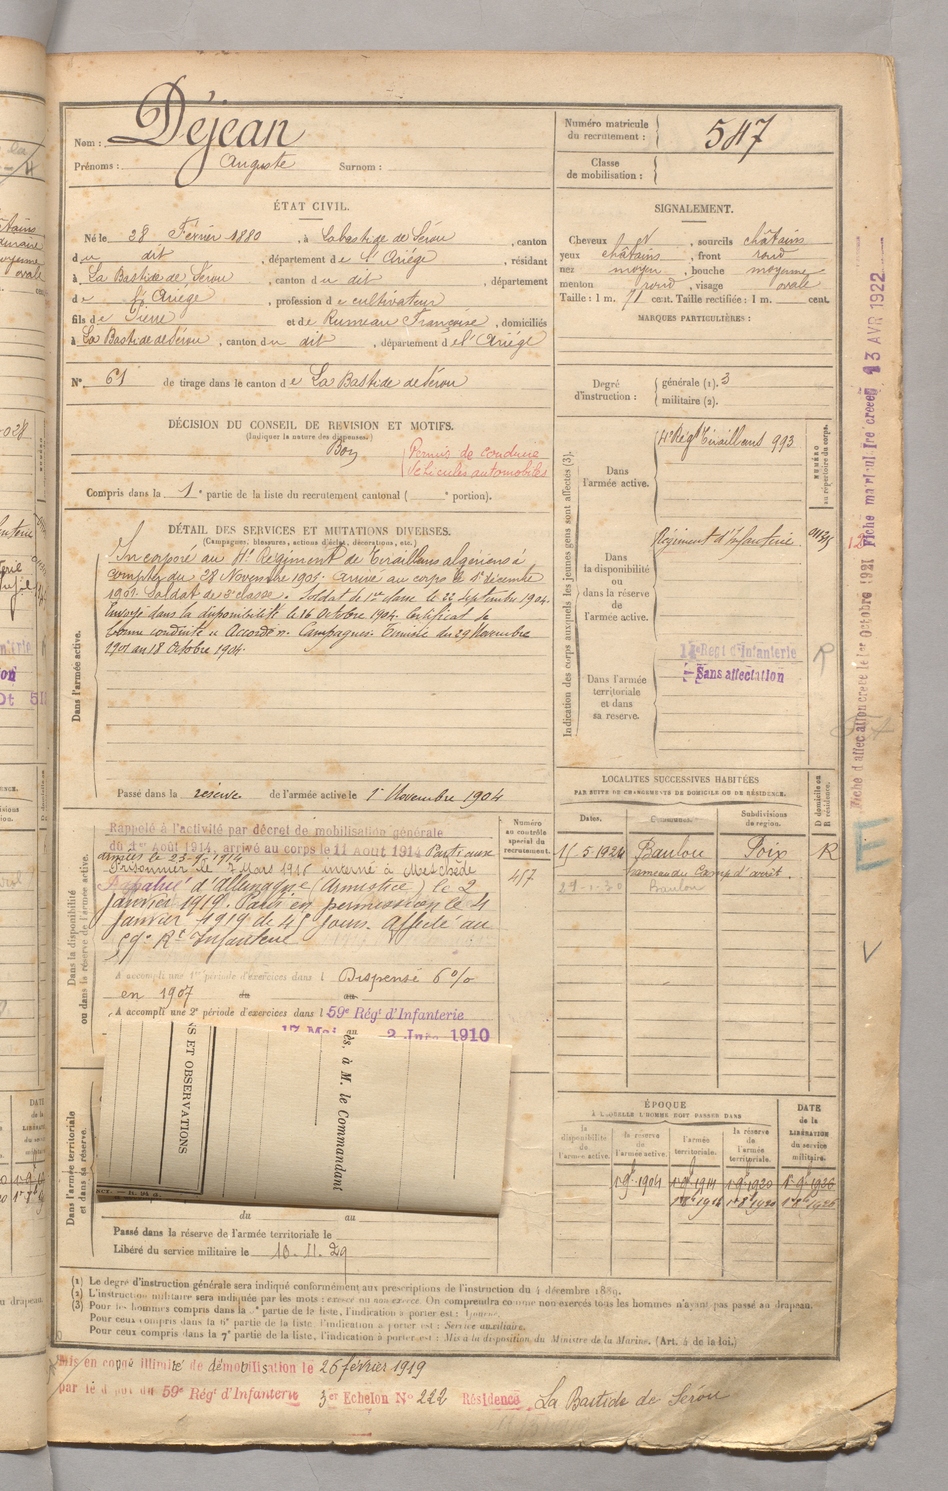 Nom : Déjean
Prénoms : Auguste Surnom :
Numéro matricule du recrutement : 547
Classe de mobilisation :
ÉTAT CIVIL.
Né le 28 Février 1880, à Labastide de Sérou, canton
du dit, département de l'Ariège, résidant
à La Bastide de Sérou, canton du dit, département
de l'Ariège, profession de cultivateur
fils de Pierre et de Rumeau Françoise, domiciliés
à La Bastide de Sérou, canton du dit, département de l'Ariége
N° 61 de tirage dans le canton de La Bastide de Sérou
SIGNALEMENT.
Cheveux et, sourcils châtains
yeux châtains, front rond
nez moyen, bouche moyenne
menton rond, visage ovale
Taille : 1 m. 71 cent. Taille rectifiée : 1 m. cent.
MARQUES PARTICULIÈRES :
Degré d'instruction : générale (1). 3
militaire (2).
DÉCISION DU CONSEIL DE REVISION ET MOTIFS.
(Indiquer la nature des dispenses.)
Bon
Permis de conduire
Véhicules automobiles
Compris dans la 1e partie de la liste du recrutement cantonal ( e portion).
DÉTAIL DES SERVICES ET MUTATIONS DIVERSES.
(Campagnes, blessures, actions d'éclat, décorations, etc.)
Dans l'armée active.
Incorporé au 4e Régiment de Tirailleurs algériens à
compter du 28 Novembre 1901. Arrivé au corps le 1er décembre
1901. Soldat de 2e classe. Soldat de 1ere classe le 22 Septembre 1904.
Envoyé dans la disponibilité le 16 Octobre 1904. Certificat de
bonne conduite "Accordé". Campagnes: Tunisie du 29 Novembre
1901 au 18 Octobre 1904.
Passé dans la réserve de l'armée active le 1er Novembre 1904
Indication des corps auxquels les jeunes gens sont affectés (3).
NUMÉRO au répertoire du corps.
Dans l'armée active.
4e Régt Tirailleurs 993
Dans la disponibilité ou dans la réserve de l'armée active.
Régiment d'Infanterie
Dans l'armée territoriale et dans sa réserve.
Régt d'Infanterie
Sans affectation
R
LOCALITÉS SUCCESSIVES HABITÉES
PAR SUITE DE CHANGEMENTS DE DOMICILE OU DE RÉSIDENCE.
Dates. Communes. Subdivisions de région. D domicile ou R résidence.
15-5-1924 Baulou Foix R
hameau du Camp d'arrêt.
Baulou
Dans la disponibilité ou dans la réserve de l'armée active.
Numéro au contrôle spécial du recrutement.
417
Rappelé à l'activité par décret de mobilisation générale
du 1er Août 1914, arrivé au corps le 11 Août 1914 Parti aux
armées le 23-9-1914
Prisonnier le 7 Mars 1916 interné à Meschède
Rapatrié d'Allemagne (Armistice) le 2
Janvier 1919. Parti en permission le 4
Janvier 1919 de 45 jours. Affecté au
59e Rt Infanterie
A accompli une 1re période d'exercices dans l Dispensé 6 %
en 1907 du au
A accompli une 2e période d'exercices dans l 59e Régt d'Infanterie
17 Mai au 2 Juin 1910
S ET OBSERVATIONS
ès, à M. le Commandant
Dans l'armée territoriale et dans sa réserve.
du au
Passé dans la réserve de l'armée territoriale le
Libéré du service militaire le 10.11.29
ÉPOQUE
À LAQUELLE L'HOMME DOIT PASSER DANS
DATE de la LIBÉRATION du service militaire.
la disponibilité de l'armée active. la réserve de l'armée active. l'armée territoriale. la réserve de l'armée territoriale.
1 9bre 1904 1 9bre 1914 1 9bre 1920 1 9bre 1926
(1) Le degré d'instruction générale sera indiqué conformément aux prescriptions de l'instruction du 4 décembre 1889.
(2) L'instruction militaire sera indiquée par les mots : exercé ou non exercé. On comprendra comme non exercés tous les hommes n'ayant pas passé au drapeau.
(3) Pour les hommes compris dans la 5e partie de la liste, l'indication à porter est : Ajourné.
Pour ceux compris dans la 6e partie de la liste l'indication à porter est : Service auxiliaire.
Pour ceux compris dans la 7e partie de la liste, l'indication à porter est : Mis à la disposition du Ministre de la Marine. (Art. 4 de la loi.)
Mis en congé illimité de démobilisation le 26 février 1919
par le dépôt du 59e Régt d'Infanterie 3er Echelon N° 222 Résidence La Bastide de Sérou
Fiche d'affectation créée le 1er Octobre 1921 Fiche matricule créée 13 AVR 1922